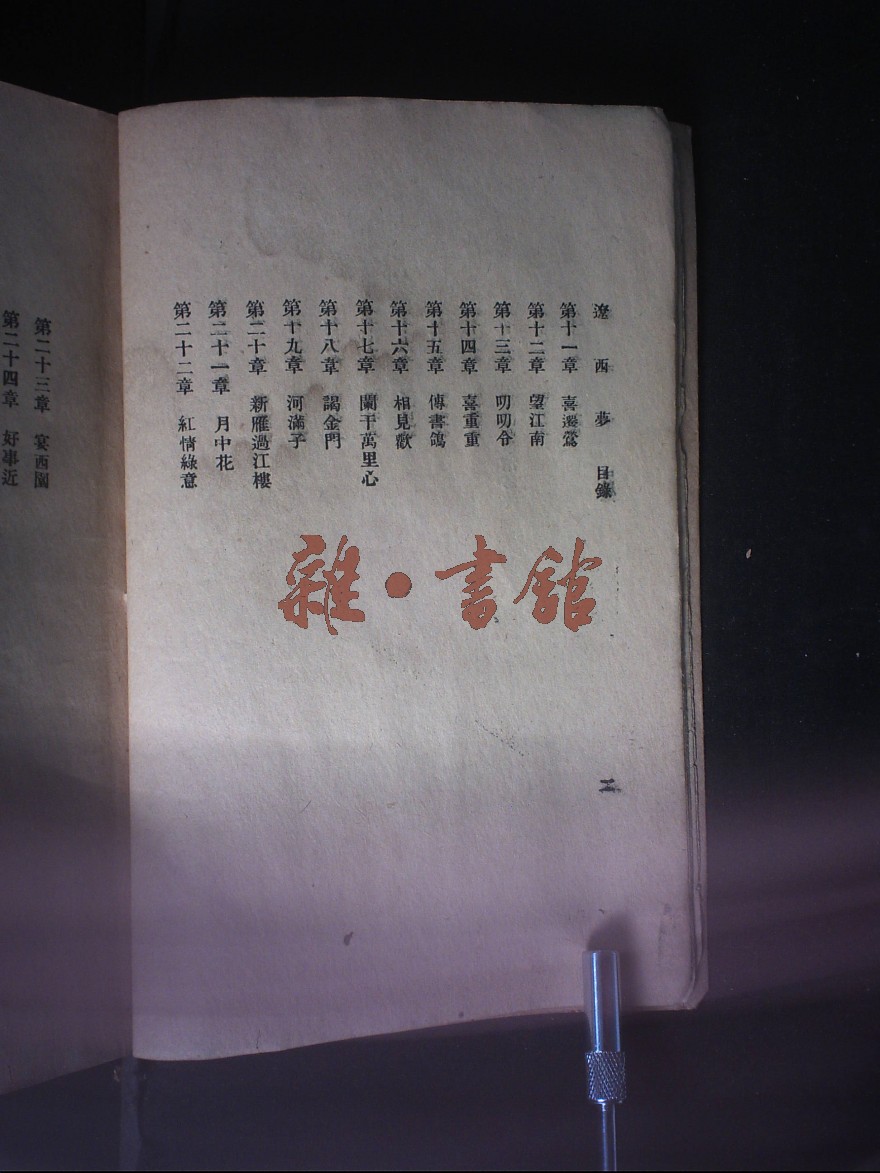 遼西夢 目錄
第十一章 喜遷鶯
第十二章 望江南
第十三章 叨叨令
第十四章 喜重重
第十五章 傳書鴿
第十六章 相見歡
第十七章 闌干萬里心
第十八章 謁金門
第十九章 河滿子
第二十章 新雁過江樓
第二十一章 月中花
第二十二章 紅情綠意
二
第二十三章 宴西園
第二十四章 好事近
雜·書館